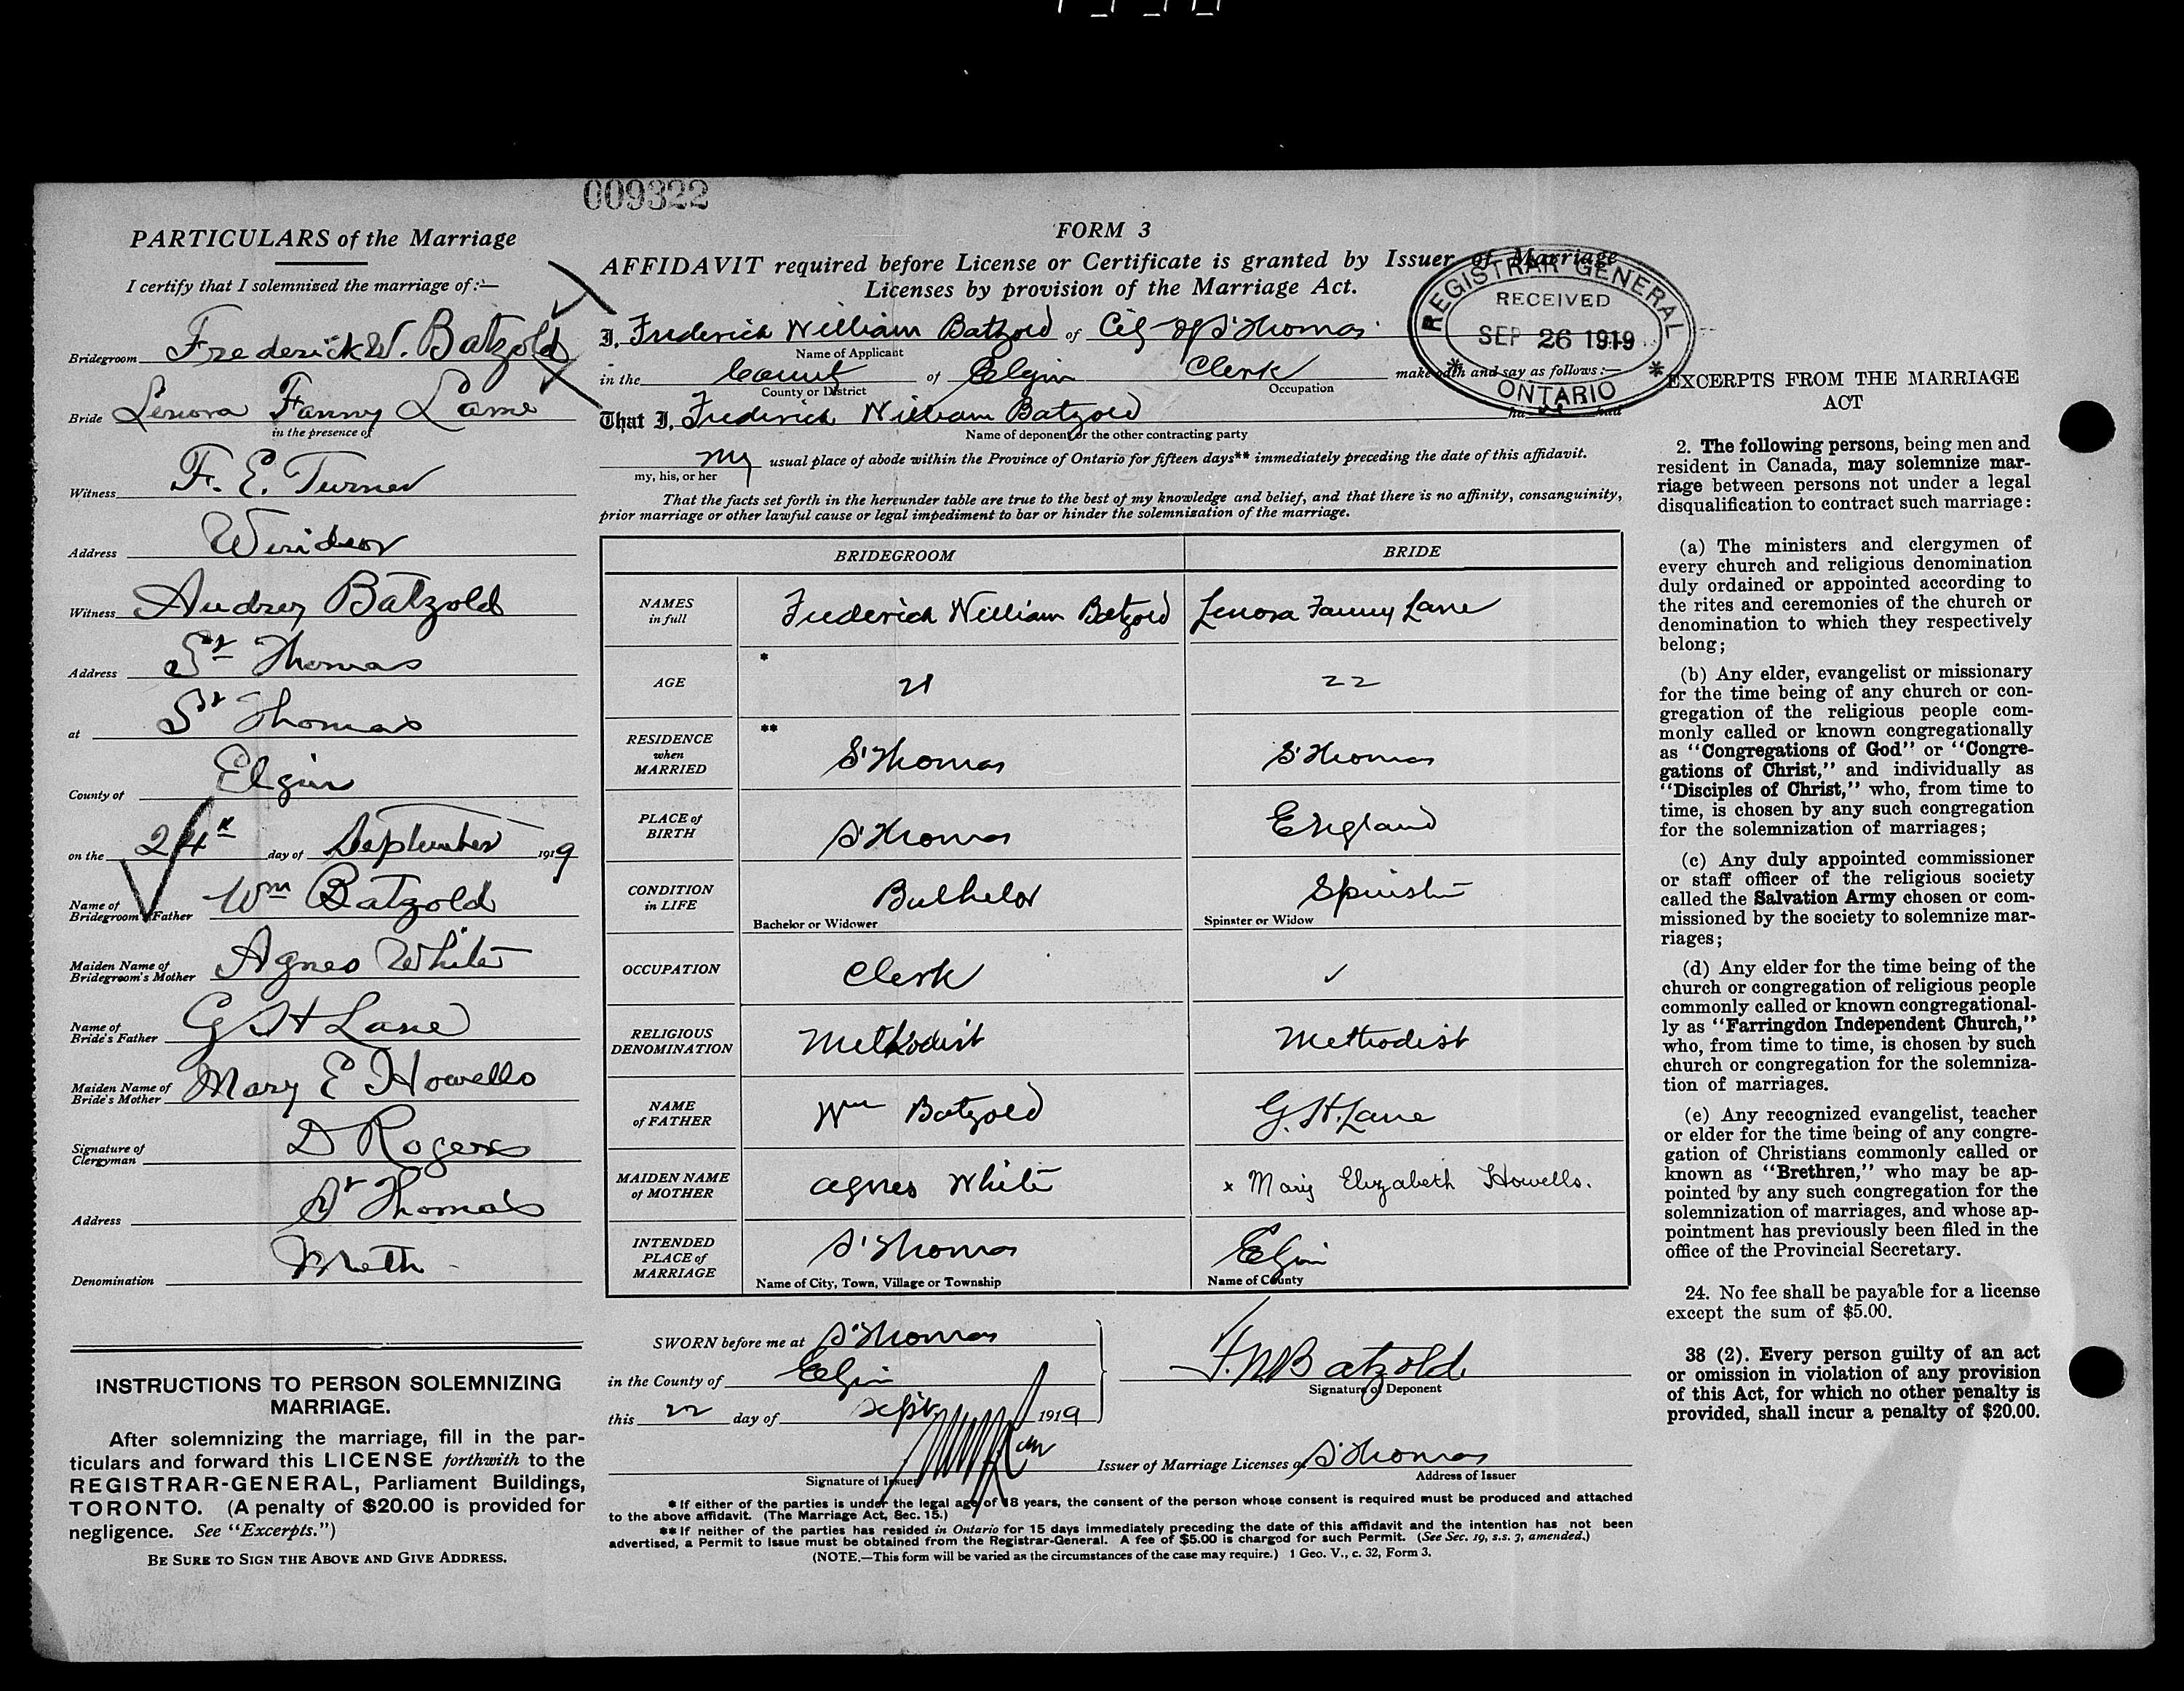 009322
PARTICULARS of the Marriage
I certify that I solemnized the marriage of:—
Bridegroom Frederick W. Batzold
Bride Lenora Fanny Lane
in the presence of
Witness F. E. Turner
Address Windsor
Witness Audrey Batzold
Address St Thomas
at St Thomas
County of Elgin
on the 24th day of September 1919
Name of Bridegroom's Father Wm Batzold
Maiden Name of Bridegroom's Mother Agnes White
Name of Bride's Father G H Lane
Maiden Name of Bride's Mother Mary E Howells
Signature of Clergyman D Rogers
Address St Thomas
Denomination Meth
INSTRUCTIONS TO PERSON SOLEMNIZING
MARRIAGE.
After solemnizing the marriage, fill in the par-
ticulars and forward this LICENSE forthwith to the
REGISTRAR-GENERAL, Parliament Buildings,
TORONTO. (A penalty of $20.00 is provided for
negligence. See "Excerpts.")
BE SURE TO SIGN THE ABOVE AND GIVE ADDRESS.
FORM 3
AFFIDAVIT required before License or Certificate is granted by Issuer of Marriage
Licenses by provision of the Marriage Act.
REGISTRAR GENERAL
RECEIVED
SEP 26 1919
ONTARIO
I, Frederick William Batzold of City of St Thomas
Name of Applicant
in the County of Elgin Clerk make oath and say as follows:—
County or District Occupation
That I, Frederick William Batzold had
Name of deponent or the other contracting party
my usual place of abode within the Province of Ontario for fifteen days** immediately preceding the date of this affidavit.
my, his, or her
That the facts set forth in the hereunder table are true to the best of my knowledge and belief, and that there is no affinity, consanguinity,
prior marriage or other lawful cause or legal impediment to bar or hinder the solemnization of the marriage.
BRIDEGROOM BRIDE
NAMES in full Frederick William Batzold Lenora Fanny Lane
AGE * 21 22
RESIDENCE when MARRIED ** St Thomas St Thomas
PLACE of BIRTH St Thomas England
CONDITION in LIFE Bachelor Spinster
Bachelor or Widower Spinster or Widow
OCCUPATION Clerk ✓
RELIGIOUS DENOMINATION Methodist Methodist
NAME of FATHER Wm Batzold G. H. Lane
MAIDEN NAME of MOTHER Agnes White x Mary Elizabeth Howells.
INTENDED PLACE of MARRIAGE St Thomas Elgin
Name of City, Town, Village or Township Name of County
SWORN before me at St Thomas
in the County of Elgin
this 22 day of Sept. 1919
F. W Batzold
Signature of Deponent
Signature of Issuer
Issuer of Marriage Licenses at St Thomas
Address of Issuer
* If either of the parties is under the legal age of 18 years, the consent of the person whose consent is required must be produced and attached
to the above affidavit. (The Marriage Act, Sec. 15.)
** If neither of the parties has resided in Ontario for 15 days immediately preceding the date of this affidavit and the intention has not been
advertised, a Permit to Issue must be obtained from the Registrar-General. A fee of $5.00 is charged for such Permit. (See Sec. 19, s.s. 3, amended.)
(NOTE.—This form will be varied as the circumstances of the case may require.) 1 Geo. V., c. 32, Form 3.
EXCERPTS FROM THE MARRIAGE
ACT
2. The following persons, being men and
resident in Canada, may solemnize mar-
riage between persons not under a legal
disqualification to contract such marriage:
(a) The ministers and clergymen of
every church and religious denomination
duly ordained or appointed according to
the rites and ceremonies of the church or
denomination to which they respectively
belong;
(b) Any elder, evangelist or missionary
for the time being of any church or con-
gregation of the religious people com-
monly called or known congregationally
as "Congregations of God" or "Congre-
gations of Christ," and individually as
"Disciples of Christ," who, from time to
time, is chosen by any such congregation
for the solemnization of marriages;
(c) Any duly appointed commissioner
or staff officer of the religious society
called the Salvation Army chosen or com-
missioned by the society to solemnize mar-
riages;
(d) Any elder for the time being of the
church or congregation of religious people
commonly called or known congregational-
ly as "Farringdon Independent Church,"
who, from time to time, is chosen by such
church or congregation for the solemniza-
tion of marriages.
(e) Any recognized evangelist, teacher
or elder for the time being of any congre-
gation of Christians commonly called or
known as "Brethren," who may be ap-
pointed by any such congregation for the
solemnization of marriages, and whose ap-
pointment has previously been filed in the
office of the Provincial Secretary.
24. No fee shall be payable for a license
except the sum of $5.00.
38 (2). Every person guilty of an act
or omission in violation of any provision
of this Act, for which no other penalty is
provided, shall incur a penalty of $20.00.